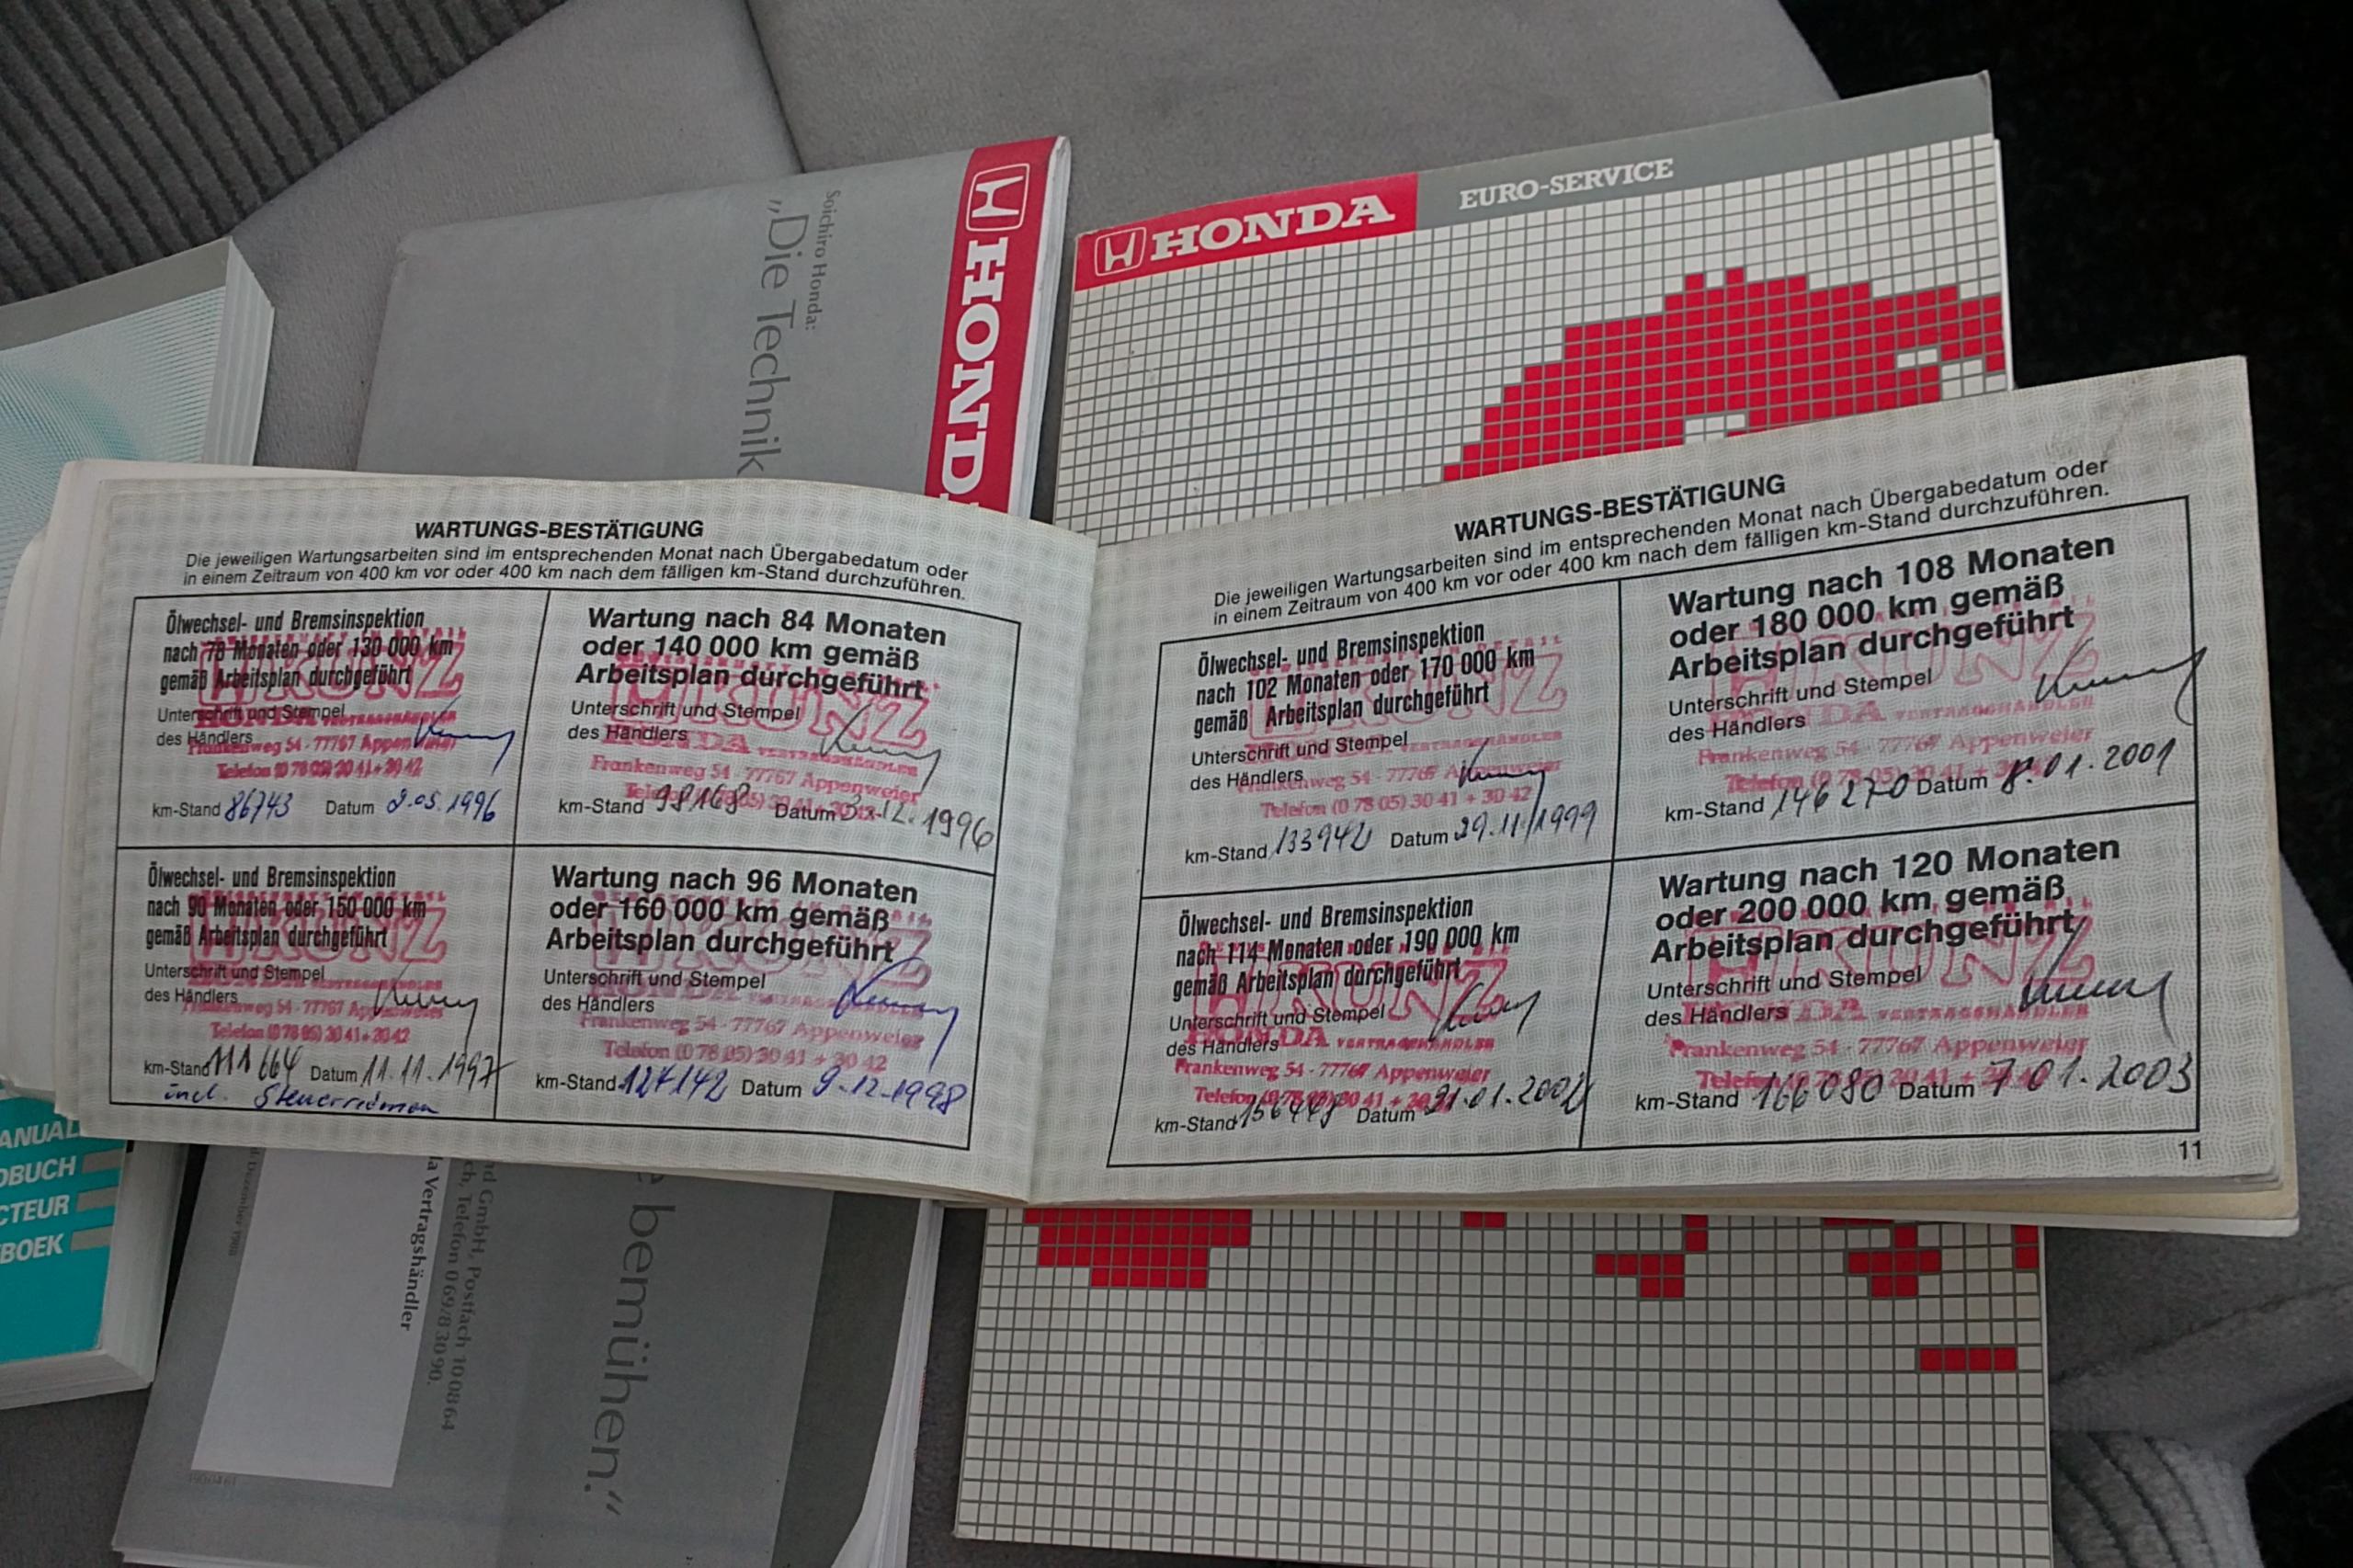 Soichiro Honda:
„Die Technik
HONDA
HONDA
EURO-SERVICE
WARTUNGS-BESTÄTIGUNG
Die jeweiligen Wartungsarbeiten sind im entsprechenden Monat nach Übergabedatum oder
in einem Zeitraum von 400 km vor oder 400 km nach dem fälligen km-Stand durchzuführen.
Ölwechsel- und Bremsinspektion
nach 78 Monaten oder 130 000 km
gemäß Arbeitsplan durchgeführt
Unterschrift und Stempel
des Händlers
KUNZ
Frankenweg 54 - 77767 Appenweier
Telefon (0 78 05) 30 41 + 30 42
km-Stand 86743 Datum 2.05.1996
Wartung nach 84 Monaten
oder 140 000 km gemäß
Arbeitsplan durchgeführt
Unterschrift und Stempel
des Händlers
KUNZ
HONDA VERTRAGSHÄNDLER
Frankenweg 54 - 77767 Appenweier
km-Stand 98168 Datum 12.1996
Ölwechsel- und Bremsinspektion
nach 90 Monaten oder 150 000 km
gemäß Arbeitsplan durchgeführt
Unterschrift und Stempel
des Händlers
KUNZ
Frankenweg 54 - 77767 Appenweier
Telefon (0 78 05) 30 41 + 30 42
km-Stand 111664 Datum 11.11.1997
incl. Steuerriemen
Wartung nach 96 Monaten
oder 160 000 km gemäß
Arbeitsplan durchgeführt
Unterschrift und Stempel
des Händlers
KUNZ
HONDA
Frankenweg 54 - 77767 Appenweier
Telefon (0 78 05) 30 41 + 30 42
km-Stand 127142 Datum 9.12.1998
WARTUNGS-BESTÄTIGUNG
Die jeweiligen Wartungsarbeiten sind im entsprechenden Monat nach Übergabedatum oder
in einem Zeitraum von 400 km vor oder 400 km nach dem fälligen km-Stand durchzuführen.
Ölwechsel- und Bremsinspektion
nach 102 Monaten oder 170 000 km
gemäß Arbeitsplan durchgeführt
Unterschrift und Stempel
des Händlers
KUNZ
VERTRAGSHÄNDLER
Frankenweg 54 - 77767 Appenweier
Telefon (0 78 05) 30 41 + 30 42
km-Stand 133942 Datum 29.11.1999
Wartung nach 108 Monaten
oder 180 000 km gemäß
Arbeitsplan durchgeführt
Unterschrift und Stempel
des Händlers
KUNZ
HONDA VERTRAGSHÄNDLER
Frankenweg 54 - 77767 Appenweier
Telefon (0 78 05) 30 41 + 30 42
km-Stand 146270 Datum 8.01.2001
Ölwechsel- und Bremsinspektion
nach 114 Monaten oder 190 000 km
gemäß Arbeitsplan durchgeführt
Unterschrift und Stempel
des Händlers
KUNZ
HONDA VERTRAGSHÄNDLER
Frankenweg 54 - 77767 Appenweier
Telefon (0 78 05) 30 41 + 30 42
km-Stand Datum 21.01.2002
Wartung nach 120 Monaten
oder 200 000 km gemäß
Arbeitsplan durchgeführt
Unterschrift und Stempel
des Händlers
KUNZ
VERTRAGSHÄNDLER
Frankenweg 54 - 77767 Appenweier
km-Stand 166080 Datum 7.01.2003
11
ANUAL
DBUCH
CTEUR
BOEK
Vertragshändler
GmbH, Postfach 100864
Telefon 069/83090.
bemühen.“